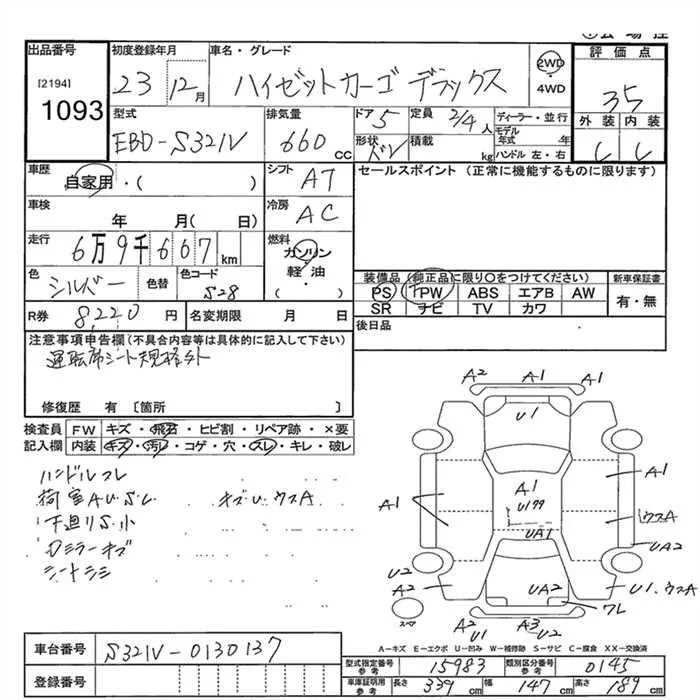 出品番号
[2194]
1093
初度登録年月
23 12月
車名・グレード
ハイゼットカーゴ デラックス
2WD
4WD
評価点
35
外装 内装
型式
EBD-S321V
排気量
660 cc
ドア 5
形状 バン
定員 2/4人
積載 kg
ディーラー・並行
モデル年式 年
ハンドル 左・右
車歴
自家用・( )
シフト AT
セールスポイント (正常に機能するものに限ります)
車検
年 月( 日)
冷房 AC
走行
6万9千667km
燃料
ガソリン
軽油
( )
色 シルバー
色替
色コード S28
装備品 (純正品に限り○をつけてください)
PS PW ABS エアB AW
SR ナビ TV カワ
新車保証書
有・無
R券 8,220円
名変期限 月 日
後日品
注意事項申告欄(不具合内容等は具体的に記入して下さい)
運転席シート規格外
修復歴 有 〔箇所 〕
検査員記入欄
FW キズ・飛石・ヒビ割・リペア跡・×要
内装 キズ・汚レ・コゲ・穴・スレ・キレ・破レ
ハンドルスレ
荷室A.U.S.L キズU ウスA
下廻りS小
Dミラーキズ
シートシミ
A2 A1 A1
U1
A1 A1 A1
U199
ウスA
UA1
UA2
U2
A2 UA2 U1.ウスA
ワレ
スペア
A2 A3
U1 U2
A-キズ E-エクボ U-凹み W-補修跡 S-サビ C-腐食 XX-交換済
車台番号 S321V-0130137
登録番号
型式指定番号 参考 15983
類別区分番号 参考 0145
車庫証明用 参考 長さ 339cm 幅 147cm 高さ 189cm